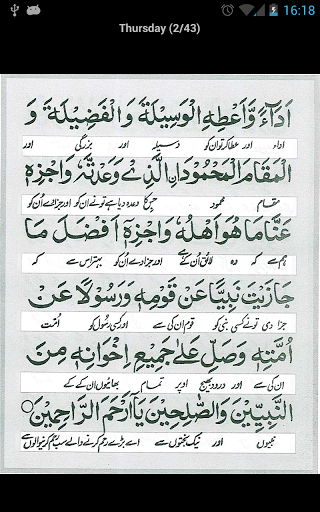 16:18
Thursday (2/43)
اَدَآءً وَّاَعْطِهِ الْوَسِيْلَةَ وَالْفَضِيْلَةَ وَ
اداء اور عطا کر تو ان کو وسیلہ اور بزرگی اور
الْمَقَامَ الْمَحْمُوْدَ نِ الَّذِيْ وَعَدْتَّهٗ وَاجْزِهٖ
مقام محمود جس کا وعدہ دیا ہے تو نے ان کو اور جزا دے اُن کو
عَنَّا مَا هُوَ اَهْلُهٗ وَاجْزِهٖٓ اَفْضَلَ مَا
ہم سے کہ وہ لائق اُن کے ہے اور جزا دے اُن کو بہتر اس سے کہ
جَازَيْتَ نَبِيًّا عَنْ قَوْمِهٖ وَرَسُوْلًا عَنْ
جزا دی تو نے کسی نبی کو قوم ان کی سے اور کسی رسول کو اُمّت
اُمَّتِهٖ وَصَلِّ عَلٰى جَمِيْعِ اِخْوَانِهٖ مِنَ
ان کی سے اور درود بھیج اوپر تمام بھائیوں ان کے کے
النَّبِيّٖنَ وَالصّٰلِحِيْنَ يَآ اَرْحَمَ الرَّاحِمِيْنَ
نبیوں اور نیک بختوں سے اے بڑے رحم کرنے والے سب رحم کرنیوالوں سے